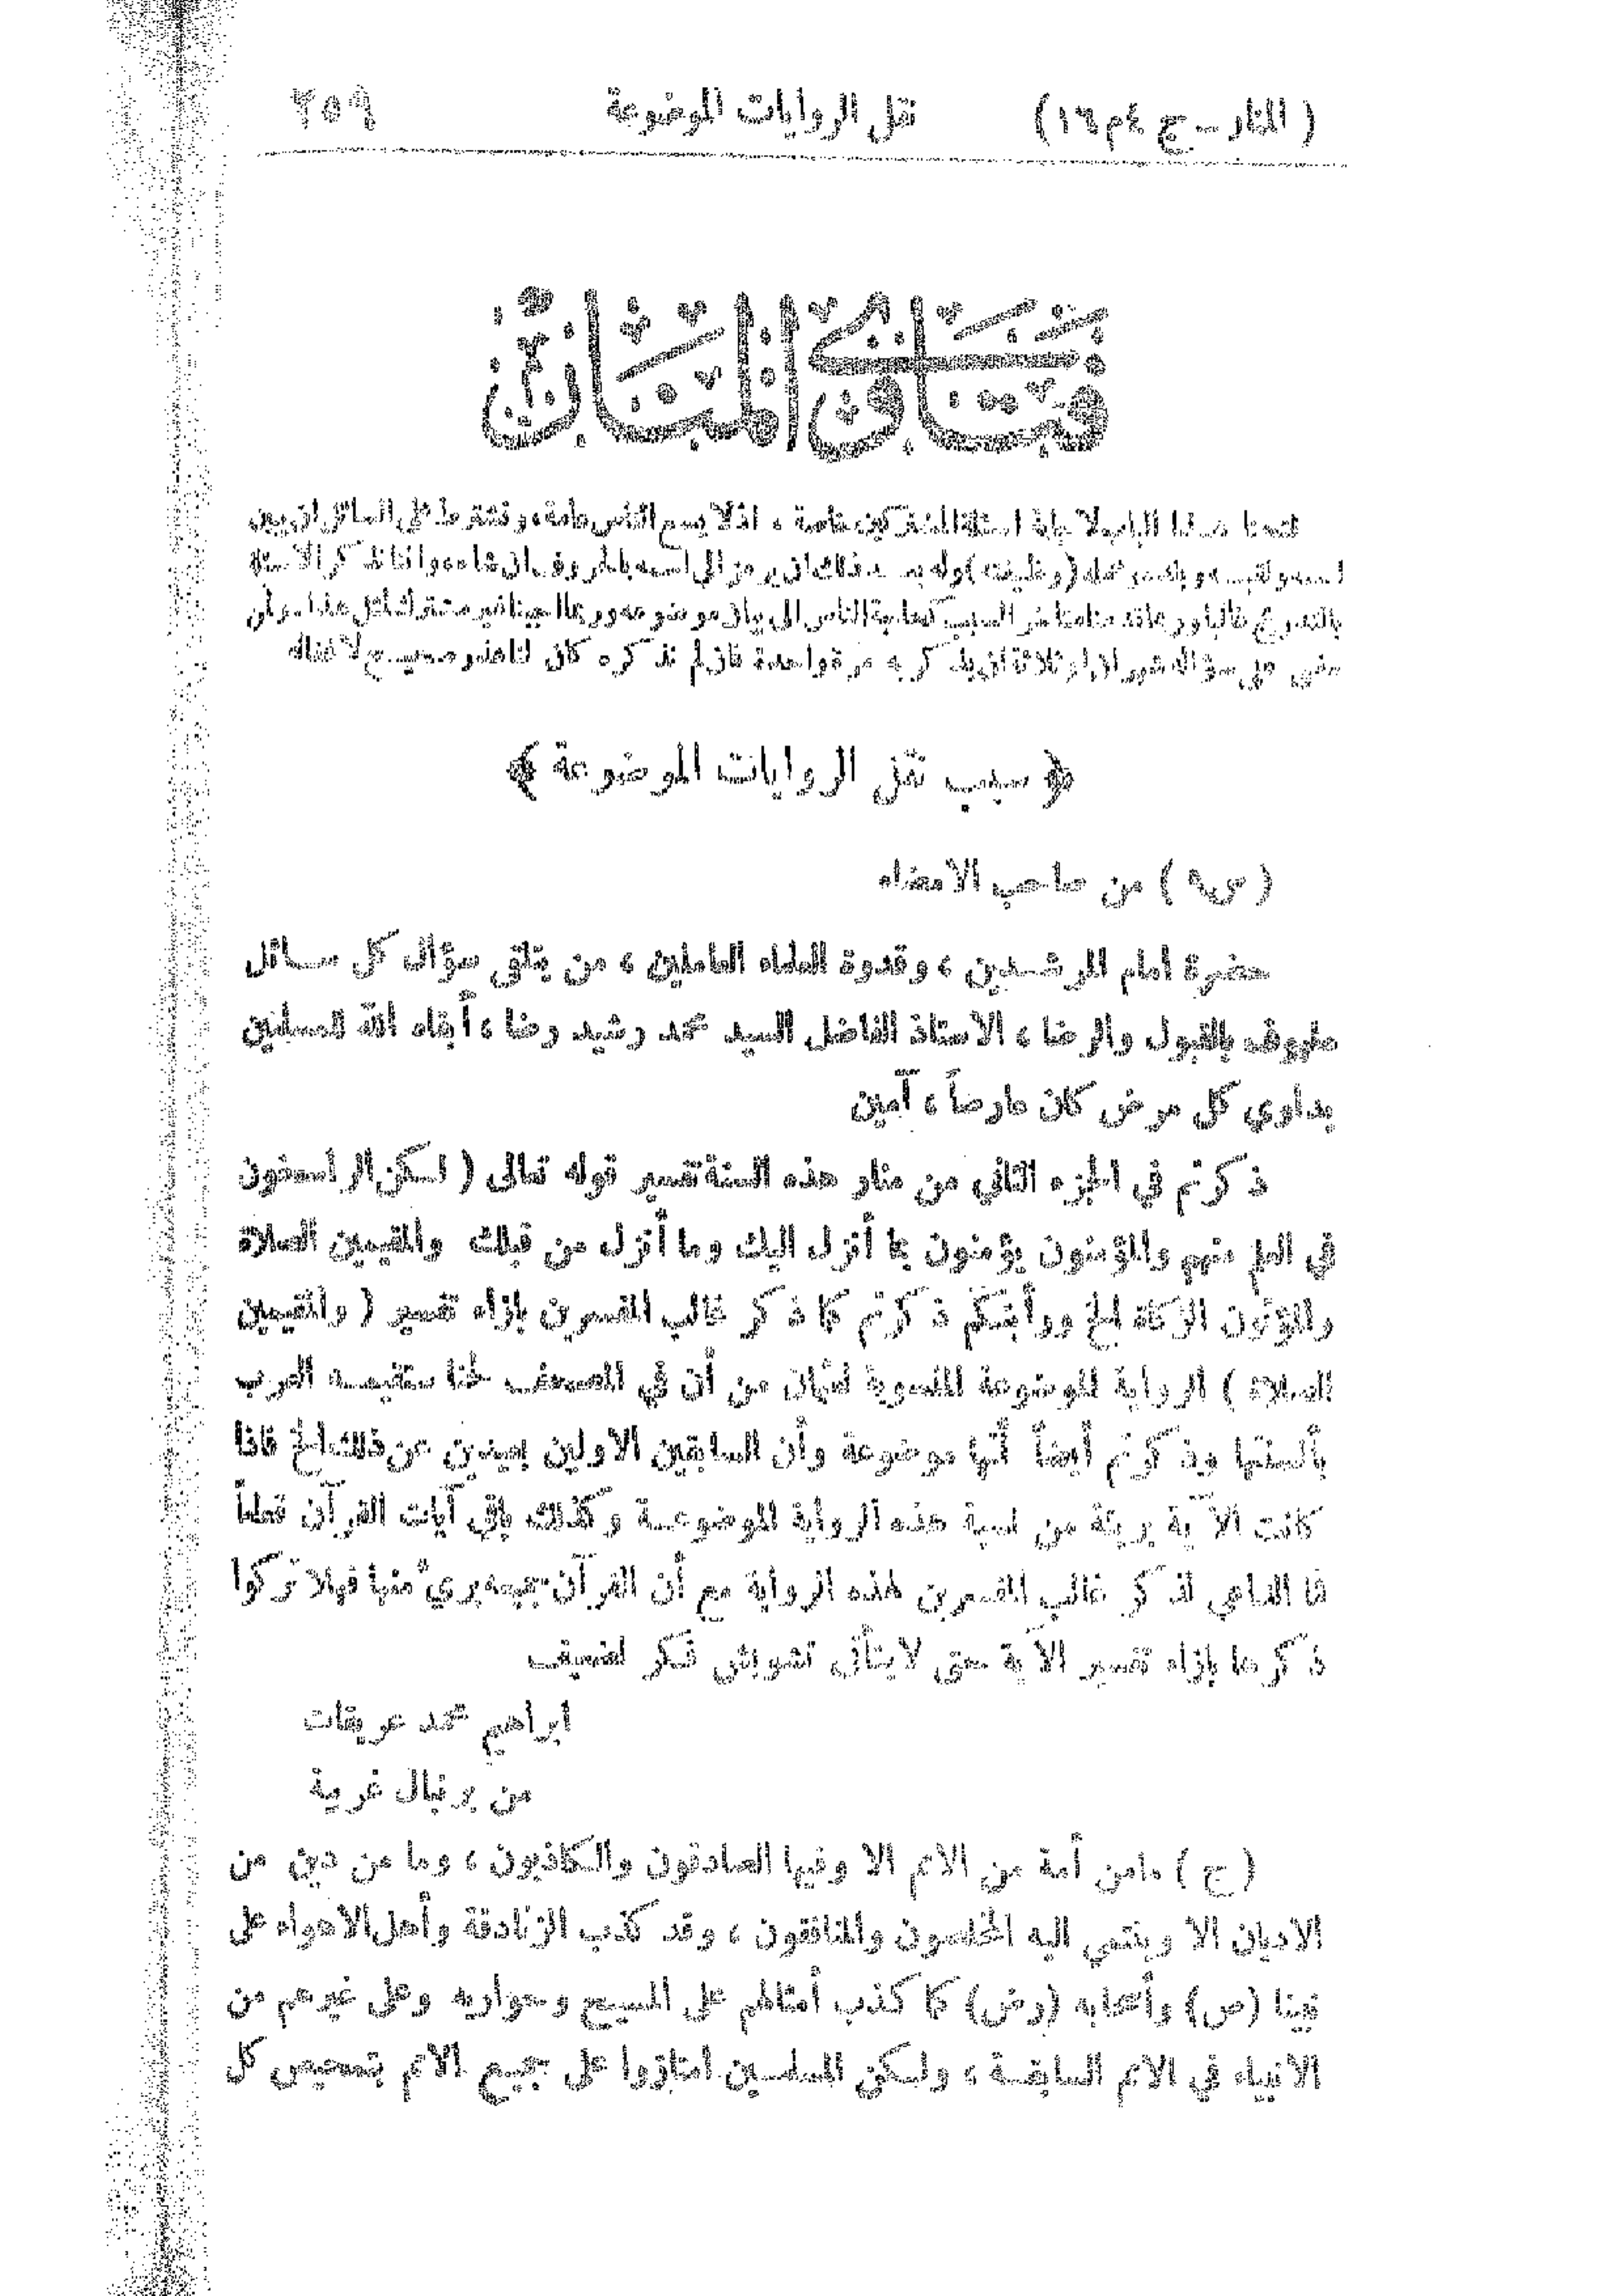 ( المنار ــ ج ٤ م ١٦ ) نقل الروايات الموضوعة ٢٥٩
فتاوى المنار
فتحنا هذا الباب لاجابة اسئلة المشتركين خاصة ، اذ لا يسع الناس عامة ، ونشترط على السائل ان يبين
اسمه ولقبه وبلده وعمله (وظيفته) وله بعد ذلك ان يرمز الى اسمه بالحروف ان شاء ، واننا نذكر الاسئلة
بالتدريج غالبا وربما قدمنا متأخرا لسبب كحاجة الناس الى بيان موضوعه وربما أجبنا غير مشترك لمثل هذا . ولمن
مضى على سؤاله شهران او ثلاثة ان يذكر به مرة واحدة فان لم نذكره كان لنا عذر صحيح لاغفاله
﴿ سبب نقل الروايات الموضوعة ﴾
( س ٩ ) من صاحب الامضاء
حضرة امام المرشدين ، وقدوة العلماء العاملين ، من يتلقى سؤال كل سائل
ملهوف بالقبول والرضا ، الاستاذ الفاضل السيد محمد رشيد رضا ، أبقاه الله للمسلمين
يداوي كل مرض كان عارضاً ، آمين
ذكرتم في الجزء الثاني من منار هذه السنة تفسير قوله تعالى ( لـكن الراسخون
في العلم منهم والمؤمنون يؤمنون بما أنزل اليك وما أنزل من قبلك والمقيمين الصلاة
والمؤتون الزكاة الخ ورأيتكم ذكرتم كما ذكر غالب المفسرين بإزاء تفسير ( والمقيمين
الصلاة ) الرواية الموضوعة المنسوبة لعثمان من أن في المصحف لحنا ستقيمه العرب
بألسنتها وذكرتم أيضاً أنها موضوعة وأن السابقين الاولين بعيدين عن ذلك الخ فاذا
كانت الآية بريئة من نسبة هذه الرواية الموضوعة وكذلك باقي آيات القرآن قطعاً
فما الداعي لذكر غالب المفسرين لهذه الرواية مع أن القرآن جميعه بريء منها فهلا تركوا
ذكرها بإزاء تفسير الآية حتى لا يتأتى تشويش فكر لضعيف
ابراهيم محمد عريقات
من برنبال غربية
( ج ) مامن أمة من الامم الا وفيها الصادقون والـكاذبون ، وما من دين من
الاديان الا وينتمي اليه المخلصون والمنافقون ، وقد كذب الزنادقة وأهل الاهواء على
نبينا (ص) وأصحابه (رض) كما كذب أمثالهم على المسيح وحواريه وعلى غيرهم من
الانبياء في الامم السابقة ، ولـكن المسلمين امتازوا على جميع الامم بتمحيص كل